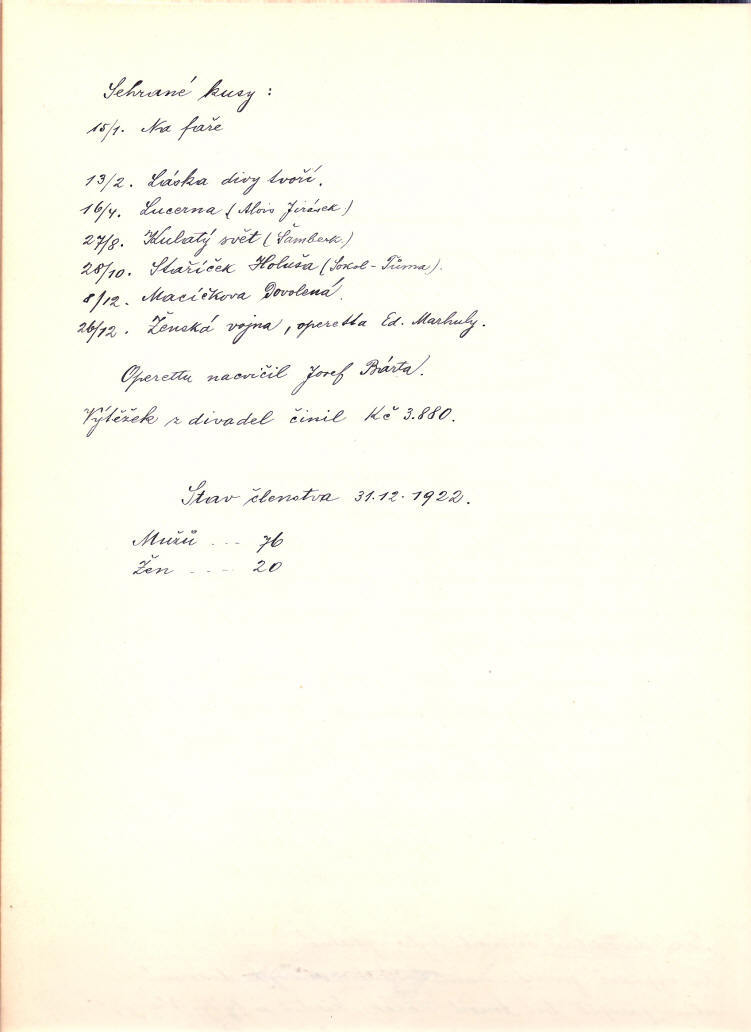 Sehrané kusy :
15/1. Na faře
13/2. Láska divy tvoří.
16/4. Lucerna (Alois Jirásek)
27/8. Kulatý svět (Šamberk.)
28/10. Staříček Holuša (Sokol-Tůma).
8/12. Macíčkova Dovolená.
26/12. Ženská vojna, operetta Ed. Marhuly.
Operettu nacvičil Josef Bárta.
Výtěžek z divadel činil Kč 3.880.
Stav členstva 31.12.1922.
Mužů ... 76
Žen .... 20